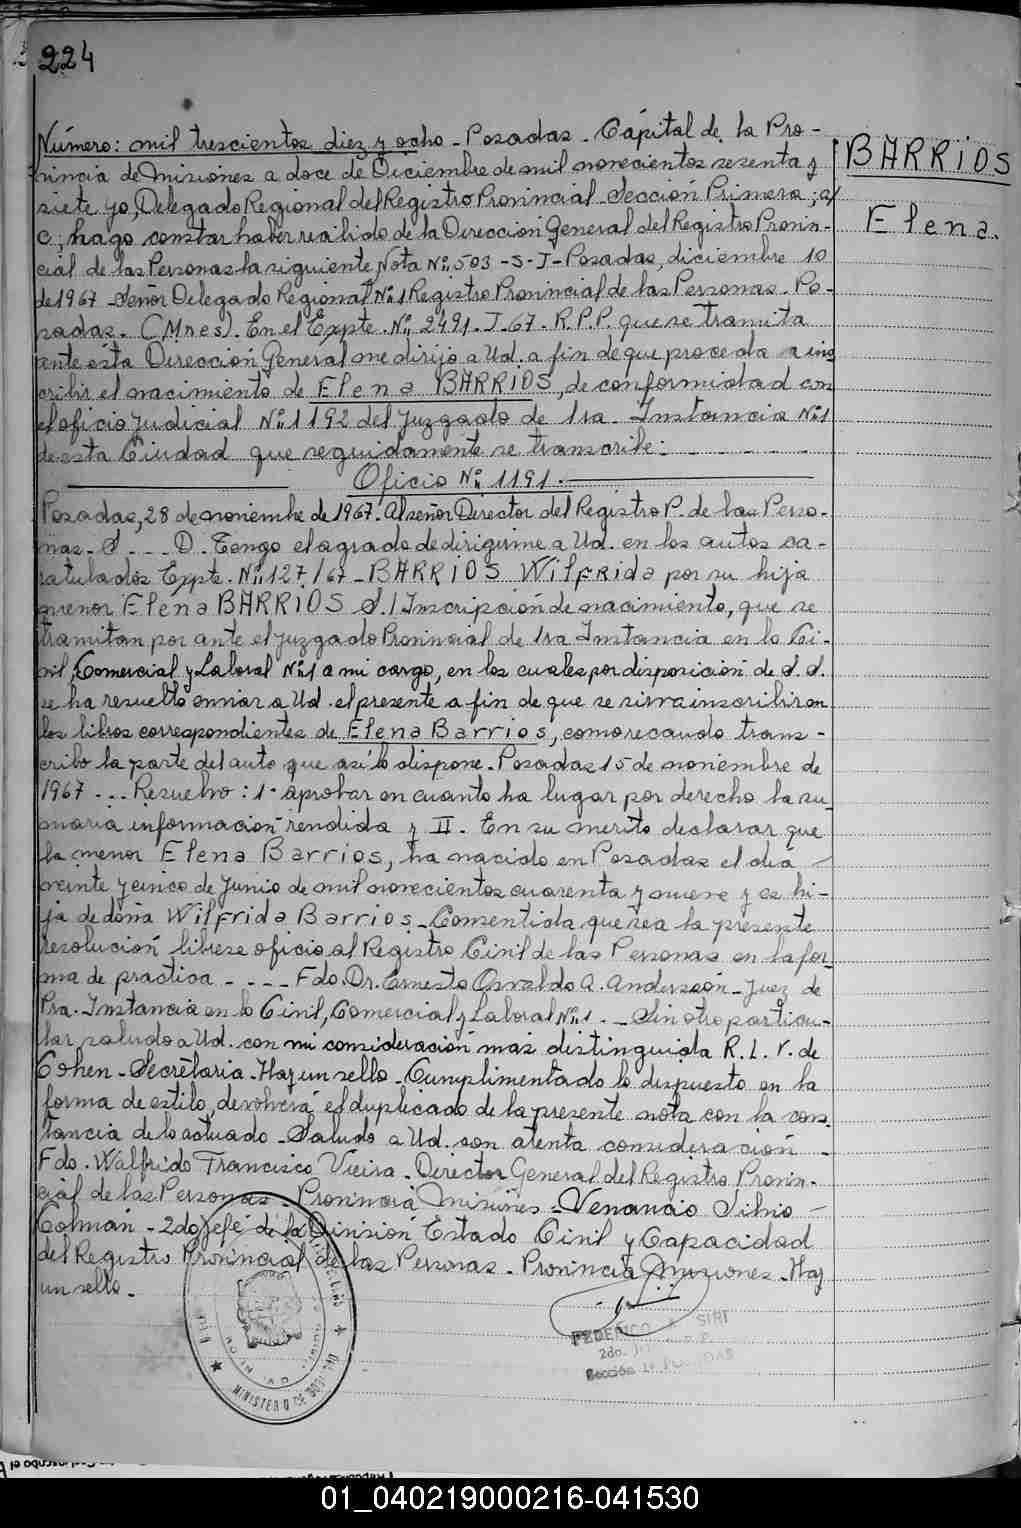 224
Número: mil trescientos diez y ocho - Posadas - Cápital de la Pro -
vincia de Misiones a doce de Diciembre de mil novecientos sesenta y
siete yo, Delegado Regional del Registro Provincial Sección Primera; a/
c; hago constar haber recibido de la Dirección General del Registro Provin-
cial de las Personas la siguiente Nota Nº 503 - S - J - Posadas, diciembre 10
de 1967 - Señor Delegado Regional Nº 1 Registro Provincial de las Personas - Po -
sadas - (Mnes). En el Expte. Nº 2491 - J 67 - R.P.P. que se tramita
ante esta Dirección General me dirijo a Ud. a fin de que proceda a ins
cribir el nacimiento de Elena BARRiOS, de conformidad con
el oficio Judicial Nº 1192 del Juzgado de 1ra. Instancia Nº 1
de esta Ciudad que seguidamente se transcribe: - - - - -
Oficio Nº 1191.
Posadas, 28 de noviembre de 1967 - Al señor Director del Registro P. de las Perso -
nas - S - - - D - Tengo el agrado de dirigirme a Ud. en los autos ca -
ratulados Expte. Nº 127/67 - BARRiOS WilFRida por su hija
menor Elena BARRiOS S./ Inscripción de nacimiento, que se
tramitan por ante el Juzgado Provincial de 1ra Instancia en lo Ci -
vil, Comercial y Laboral Nº 1 a mi cargo, en los cuales por disposición de S. S.
se ha resuelto enviar a Ud. el presente a fin de que se sirva inscribir en
los libros correspondientes de Elena Barrios, como recaudo trans -
cribo la parte del auto que así lo dispone - Posadas 15 de noviembre de
1967 - . . Resuelvo: 1- aprobar en cuanto ha lugar por derecho la su_
maria información rendida y II - En su merito declarar que
la menor Elena Barrios, ha nacido en Posadas el dia
veinte y cinco de Junio de mil novecientos cuarenta y nueve y es hi -
ja de doña Wilfrida Barrios - Consentida que sea la presente
resolución librese oficio al Registro Civil de las Personas en la for_
ma de practica - - - - Fdo. Dr. Ernesto Osvaldo A. Andersson - Juez de
Pra. Instancia en lo Civil, Comercial y Laboral Nº 1 - Sin otro particu -
lar saludo a Ud. con mi consideración mas distinguida R. L. V. de
Cohen - Secretaria - Hay un sello - Cumplimentado lo dispuesto en la
forma de estilo, devolverá el duplicado de la presente nota con la cons
tancia de lo actuado - Saludo a Ud. con atenta consideración -
Fdo. Walfrido Francisco Vieira - Director General del Registro Provin -
cial de las Personas - Provincia Misiones - Venancio Silvio
Colman - 2do Jefe de la División Estado Civil y Capacidad
del Registro Provincial de las Personas - Provincia Misiones - Hay
un sello.
BARRiOS
Elena.
MINISTERIO DE
FEDERICO SIRI
2do.
Sección 1ª POSADAS
01_040219000216-041530